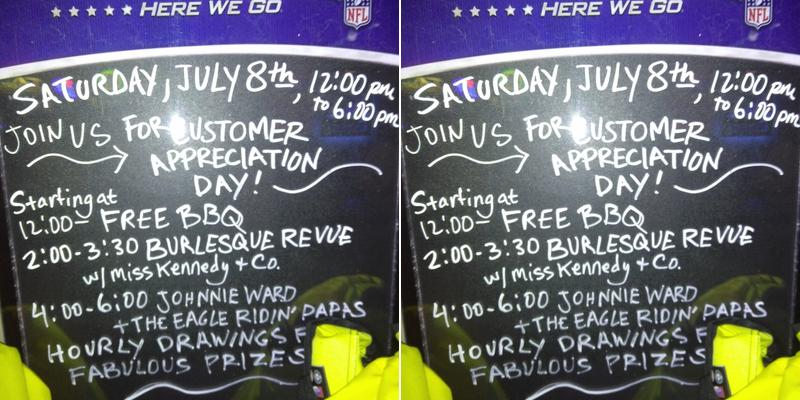 HERE WE GO
NFL
SATURDAY, JULY 8th, 12:00 pm
to 6:00 pm
JOIN US FOR CUSTOMER
APPRECIATION
DAY!
Starting at
12:00- FREE BBQ
2:00-3:30 BURLESQUE REVUE
w/ miss Kennedy + Co.
4:00-6:00 JOHNNIE WARD
+ THE EAGLE RIDIN' PAPAS
HOURLY DRAWINGS
FABULOUS PRIZES
HERE WE GO
NFL
SATURDAY, JULY 8th, 12:00 pm
to 6:00 pm
JOIN US FOR CUSTOMER
APPRECIATION
DAY!
Starting at
12:00- FREE BBQ
2:00-3:30 BURLESQUE REVUE
w/ miss Kennedy + Co.
4:00-6:00 JOHNNIE WARD
+ THE EAGLE RIDIN' PAPAS
HOURLY DRAWINGS
FABULOUS PRIZES